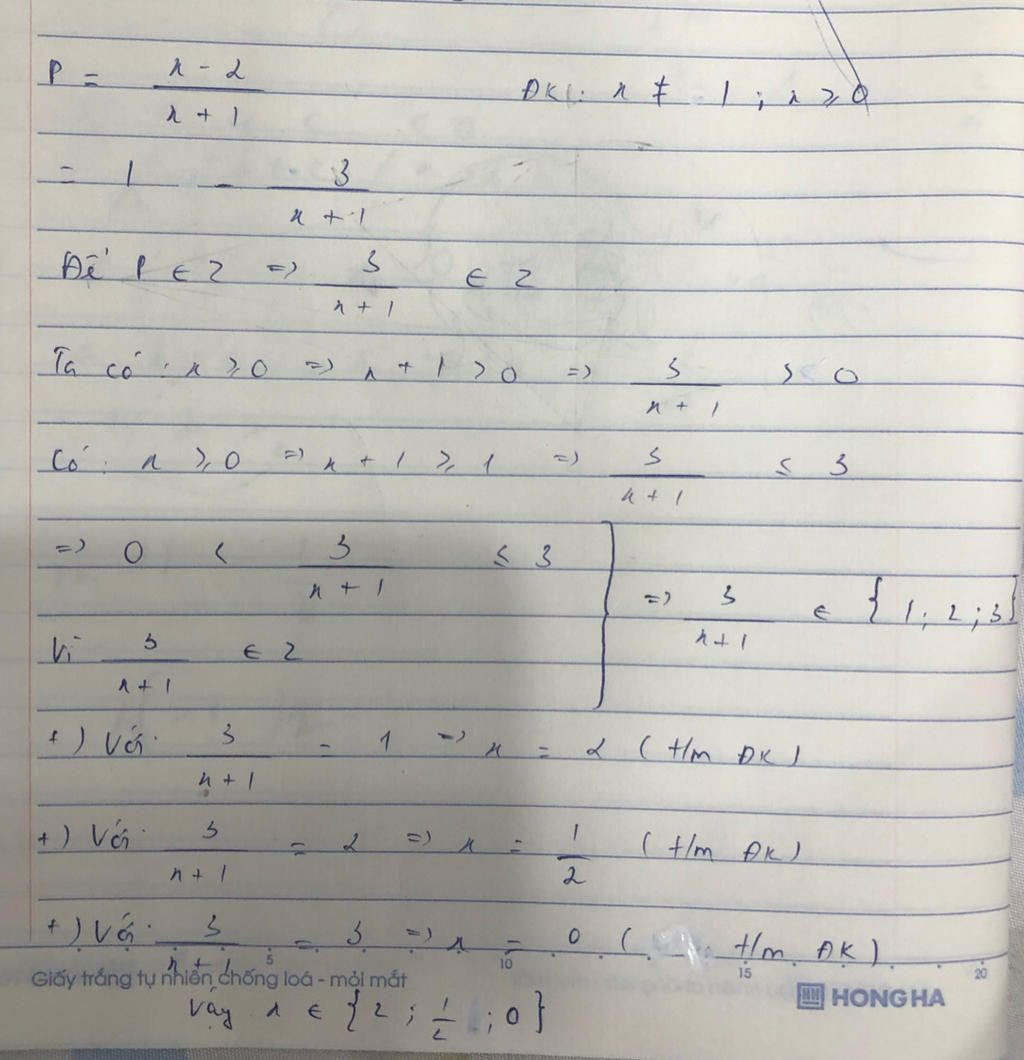 P = x - 2 / x + 1    ĐK: x ≠ 1 ; x ≥ 0
= 1 - 3 / x + 1
Để P ∈ Z => 3 / x + 1 ∈ Z
Ta có : x ≥ 0 => x + 1 > 0 => 3 / x + 1 > 0
Có : x ≥ 0 => x + 1 ≥ 1 => 3 / x + 1 ≤ 3
=> 0 < 3 / x + 1 ≤ 3
Vì 3 / x + 1 ∈ Z
=> 3 / x + 1 ∈ { 1 ; 2 ; 3 }
+ ) Với 3 / x + 1 = 1 => x = 2 ( t/m ĐK )
+ ) Với 3 / x + 1 = 2 => x = 1 / 2 ( t/m ĐK )
+ ) Với 3 / x + 1 = 3 => x = 0 ( t/m ĐK )
5 10 15 20
Giấy trắng tự nhiên chống loá - mỏi mắt
HH HONG HA
Vậy x ∈ { 2 ; 1 / 2 ; 0 }